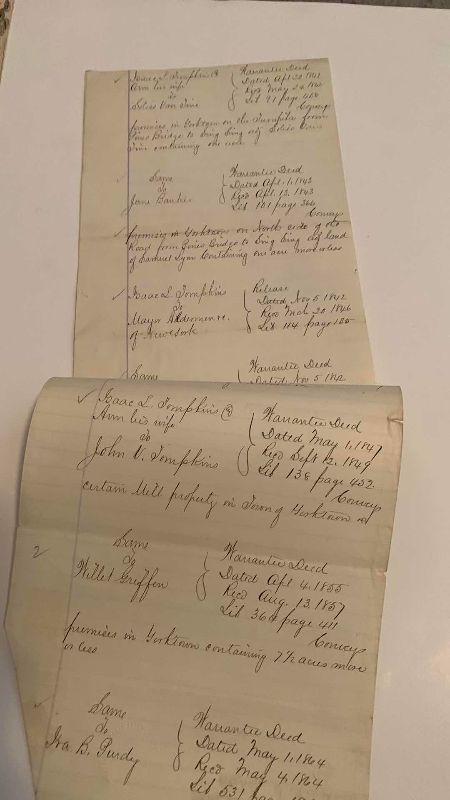 Isaac L. Tompkins &
Ann his wife
to
Silas Van Tine
Warrantee Deed
Dated Apl 20
Recd May 24
Lib page 408
Convey
premises in Yorktown on the Turnpike from
Pines Bridge to Sing Sing adj Silas Van
Tine containing one acre
Same
To
Jane Banker
Warrantee Deed
Dated Apl. 1, 1843
Recd Apl. 13. 1843
Lib 101 page 366
Convey
premises in Yorktown on North side of the
Road from Pines Bridge to Sing Sing adj land
of Samuel Lyon Containing one acre more or less
Isaac L. Tompkins
To
Mayor Aldermen &c.
of New York
Release
Dated Nov 5 1842
Recd Mar 20 1846
Lib 114 page 155
Same
Warrantee Deed
Dated Nov 5 1842
Isaac L. Tompkins &
Ann his wife
to
John V. Tompkins
Warrantee Deed
Dated May 1, 1847
Recd Sept 12, 1849
Lib 138 page 432
Conveys
certain Mill property in Town of Yorktown
2
Same
To
Willet Griffen
Warrantee Deed
Dated Apl 4. 1855
Recd Aug. 13. 1857
Lib 364 page 411
Conveys
premises in Yorktown containing 7½ acres more
or less
Same
To
Ira B. Purdy
Warrantee Deed
Dated May 1, 1864
Recd May 4. 1864
Lib 531